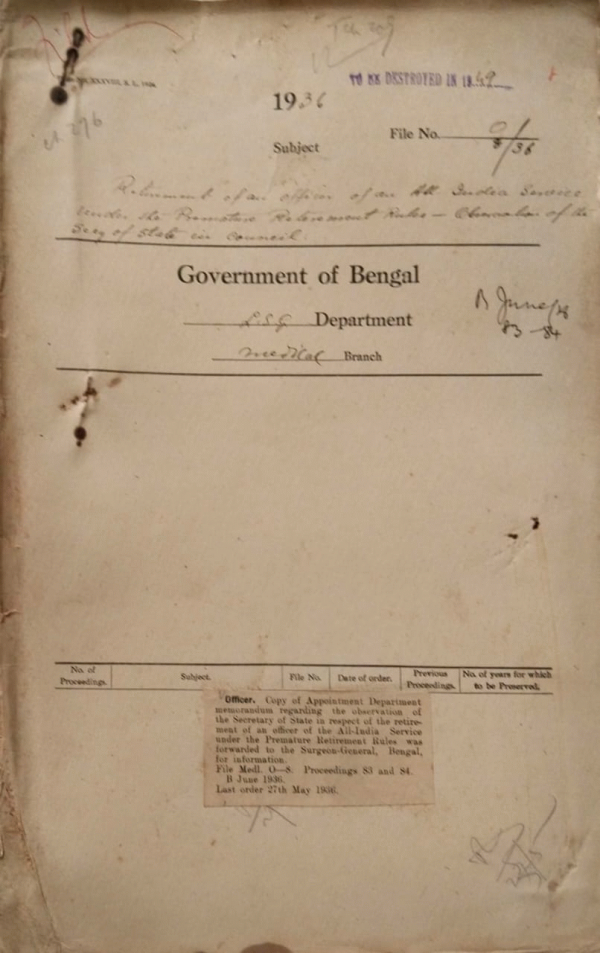 TO BE DESTROYED IN 1949
1936
File No. O/8/36
Subject
Retirement of an officer of an All India Service
under the Premature Retirement Rules — Observation of the
Secy of State in Council.
Government of Bengal
L.S.G Department
B June/36
83-84
Medical Branch
No. of Proceedings. Subject. File No. Date of order. Previous Proceedings. No. of years for which to be Preserved.
Officer. Copy of Appointment Department
memorandum regarding the observation of
the Secretary of State in respect of the retire-
ment of an officer of the All-India Service
under the Premature Retirement Rules was
forwarded to the Surgeon-General, Bengal,
for information.
File Medl. O—8. Proceedings 83 and 84.
B June 1936.
Last order 27th May 1936.